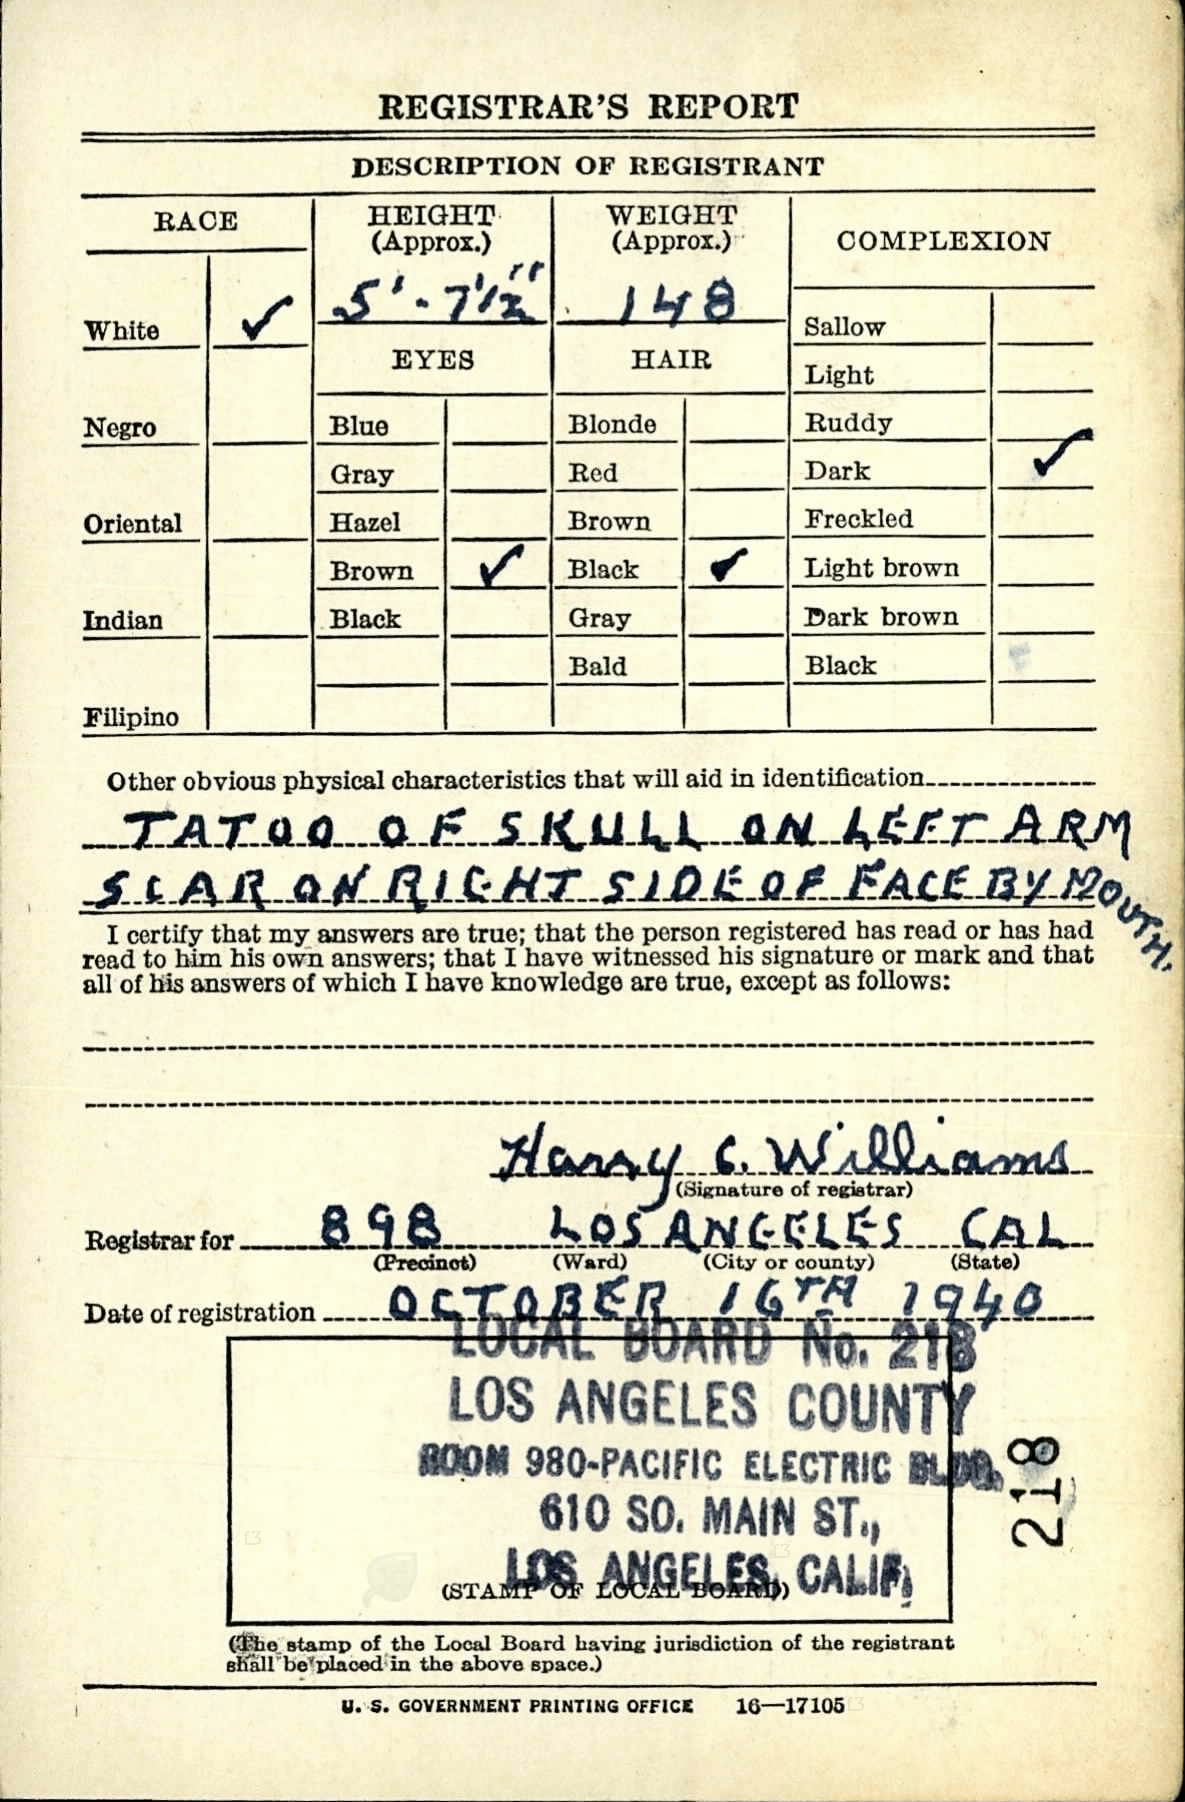 REGISTRAR'S REPORT
DESCRIPTION OF REGISTRANT
RACE
HEIGHT
(Approx.)
WEIGHT
(Approx.)
COMPLEXION
White ✓
5' - 7 1/2"
148
Sallow
EYES
HAIR
Light
Negro
Blue
Blonde
Ruddy
Gray
Red
Dark ✓
Oriental
Hazel
Brown
Freckled
Brown ✓
Black ✓
Light brown
Indian
Black
Gray
Dark brown
Bald
Black
Filipino
Other obvious physical characteristics that will aid in identification
TATOO OF SKULL ON LEFT ARM
SCAR ON RIGHT SIDE OF FACE BY MOUTH.
I certify that my answers are true; that the person registered has read or has had
read to him his own answers; that I have witnessed his signature or mark and that
all of his answers of which I have knowledge are true, except as follows:
Harry C. Williams
(Signature of registrar)
Registrar for 898 LOS ANGELES CAL
(Precinct) (Ward) (City or county) (State)
Date of registration OCTOBER 16TH 1940
LOCAL BOARD No. 218
LOS ANGELES COUNTY
ROOM 980-PACIFIC ELECTRIC BLDG.
610 SO. MAIN ST.,
LOS ANGELES, CALIF.
218
(STAMP OF LOCAL BOARD)
(The stamp of the Local Board having jurisdiction of the registrant
shall be placed in the above space.)
U. S. GOVERNMENT PRINTING OFFICE 16—17105